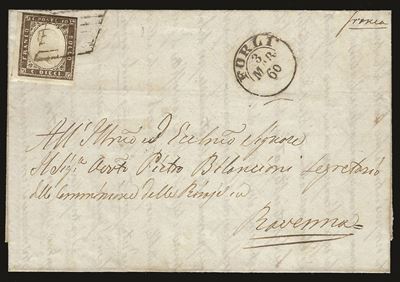 C. POSTE 10
FRANCO
BOLLO
C. DIECI
franca
FORLI
3
MAR
60
All' Illmo ed Eccelmo Signore
Il Sigr Avvto Pietro Bilancioni Segretario
della Commissione delle
Ravenna